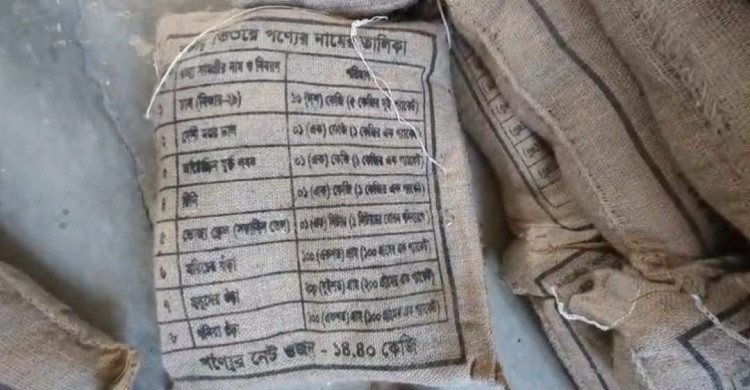 ভিতরে পণ্যের নামের তালিকা
খাদ্য সামগ্রীর নাম ও বিবরণ পরিমাণ
১ চাল (মিনার-২৯) ১০ (দশ) কেজি (৫ কেজির দুই প্যাকেট)
২ দেশী মসুর ডাল ০১ (এক) কেজি (১ কেজির এক প্যাকেট)
৩ আয়োডিন যুক্ত লবণ ০১ (এক) কেজি (১ কেজির এক প্যাকেট)
৪ চিনি ০১ (এক) কেজি (১ কেজির এক প্যাকেট)
৫ ভোজ্য তেল (সয়াবিন তেল) ০১ (এক) লিটার (১ লিটারের বোতল
৬ মরিচের গুঁড়া ১০০ (একশত) গ্রাম (১০০ গ্রামের এক প্যাকেট)
৭ হলুদের গুঁড়া ২০০ (দুইশত) গ্রাম (২০০ গ্রামের এক প্যাকেট)
৮ ধনিয়া গুঁড়া ১০০ (একশত) গ্রাম (১০০ গ্রামের এক প্যাকেট)
পণ্যের নেট ওজন - ১৪.৪০ কেজি